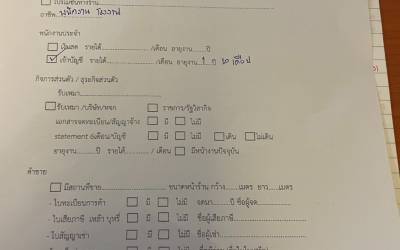 ☐ โปรโมชั่นทางร้าน
อาชีพ..พนักงาน โรงงาน
พนักงานประจำ
☐ เงินสด รายได้............../เดือน อายุงาน......ปี
☑ เข้าบัญชี รายได้............../เดือน อายุงาน 1 ปี 10 เดือน
กิจการส่วนตัว / ธุรกิจส่วนตัว
รับเหมา..............................
☐ รับเหมา /บริษัท/หจก ☐ ราชการ/รัฐวิสาหกิจ
เอกสารจดทะเบียน/สัญญาจ้าง ☐ มี ☐ ไม่มี
statement 6เดือน/บัญชี ☐ มี ☐ ไม่มี ☐ เดิน ☐ ไม่เดิน
อายุงาน..........ปี รายได้............/ เดือน ☐ มีหน้างานปัจจุบัน
ค้าขาย
☐ มีสถานที่ขาย........................ ขนาดหน้าร้าน กว้าง......เมตร ยาว......เมตร
- ใบทะเบียนการค้า ☐ มี ☐ ไม่มี จดมา.......ปี ชื่อผู้จด................
- ใบเสียภาษี เหล้า บุหรี่ ☐ มี ☐ ไม่มี ชื่อผู้เสียภาษี......................
- ใบสัญญาเช่า ☐ มี ☐ ไม่มี ชื่อผู้เช่า......................